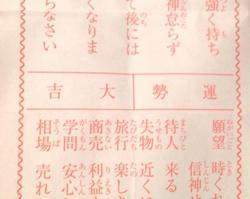 強く持ち
神怠らず
て後には
くなりま
らなさい
運勢
大吉
願望 時く
信神
待人 来る
失物 近く
旅行 楽し
商売 利益
学問 安心
相場 売れ